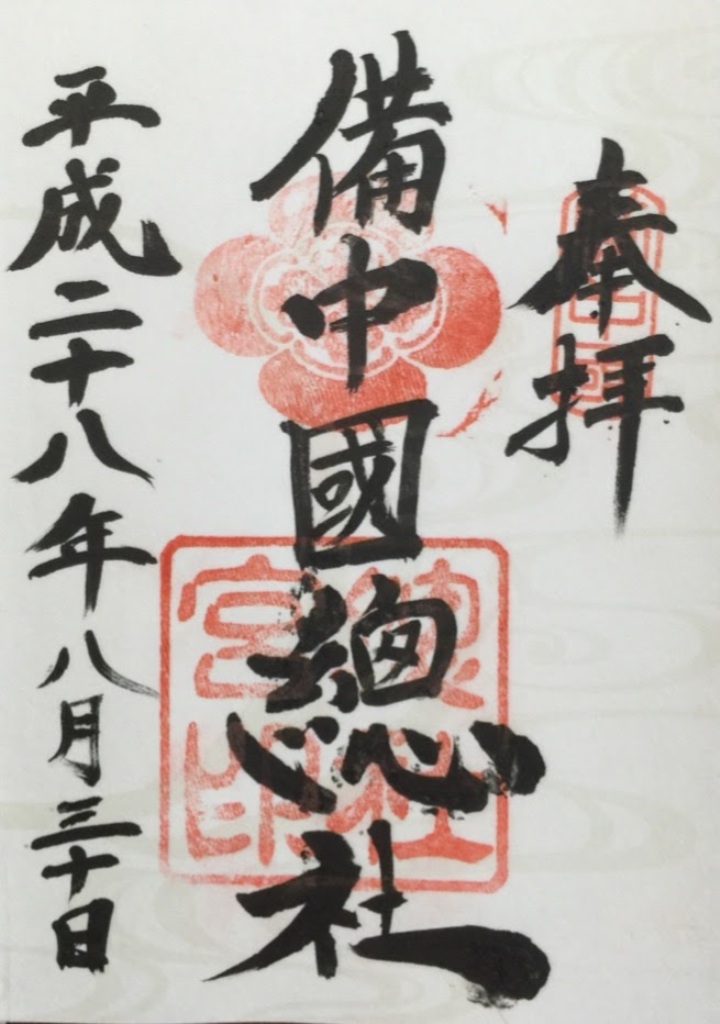 奉拝
備中國總社
總社宮印
平成二十八年八月三十日